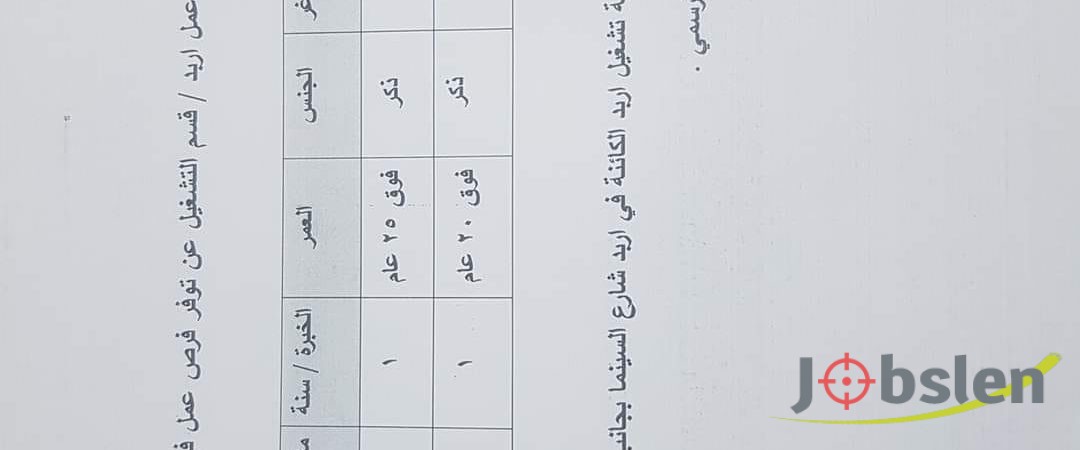 عمل اربد / قسم التشغيل عن توفر فرص عمل
الجنس العمر الخبرة / سنة
ذكر فوق ٢٥ عام ١
ذكر فوق ٢٠ عام ١
تشغيل اربد الكائنة في اربد شارع السينما بجانب
رسمي .
Jobslen